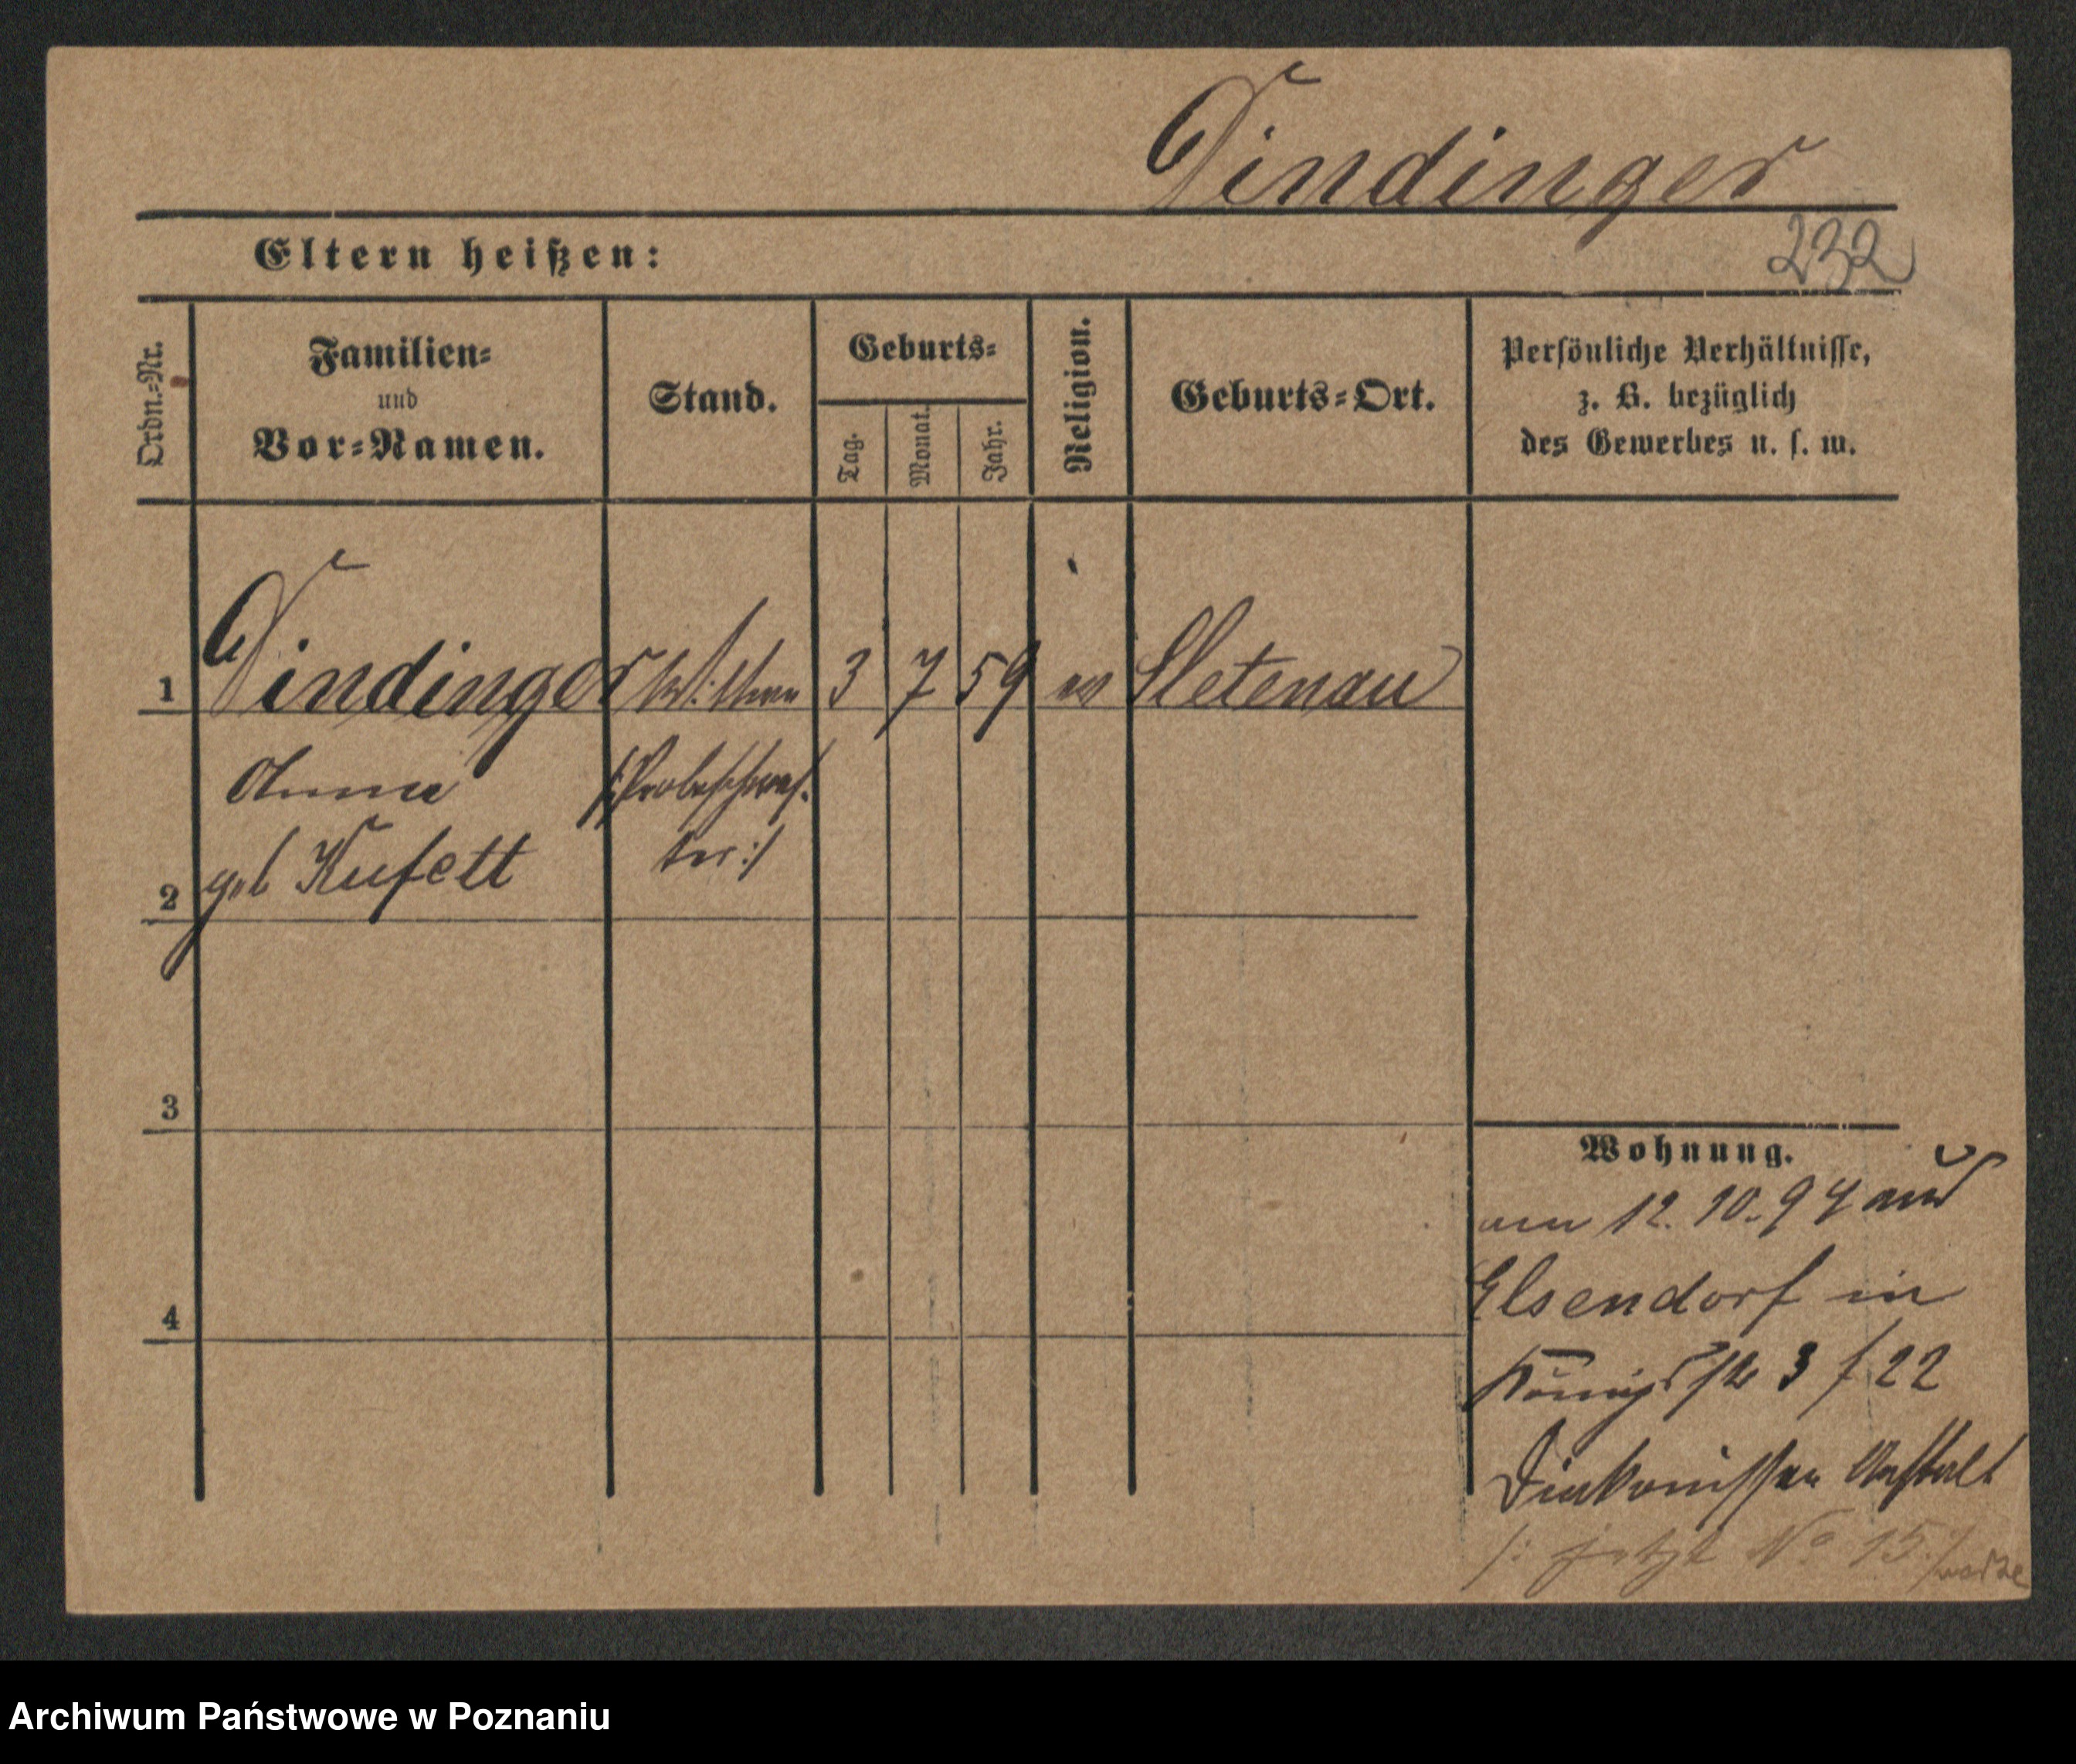 Dindinger
232
Eltern heißen:
Ordn.=Nr.
Familien=
und
Vor=Namen.
Stand.
Geburts=
Tag.
Monat.
Jahr.
Religion.
Geburts=Ort.
Persönliche Verhältnisse,
z. B. bezüglich
des Gewerbes u. s. w.
1 Dindinger 3 7 59 ev Sletenau
Anna /:Probeschwes-
ter:/
2 geb Kufett
3
4
Wohnung.
am 12. 10. 94 aus
Elsendorf in
Königsstr 3 f 22
Diakonissen Anstalt
/: jetzt No 15
Archiwum Państwowe w Poznaniu